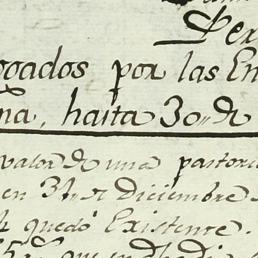 Per
ogados por las En
na, hasta 30,, de
valor de una pastori
en 31,, de Diciembre
quedó Existente.
que en